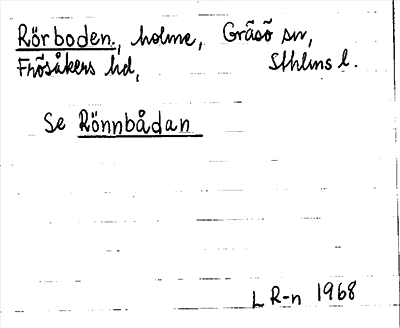 Rörboden, holme, Gräsö sn,
Frösåkers hd, Sthlms l.
Se Rönnbådan
L R-n 1968